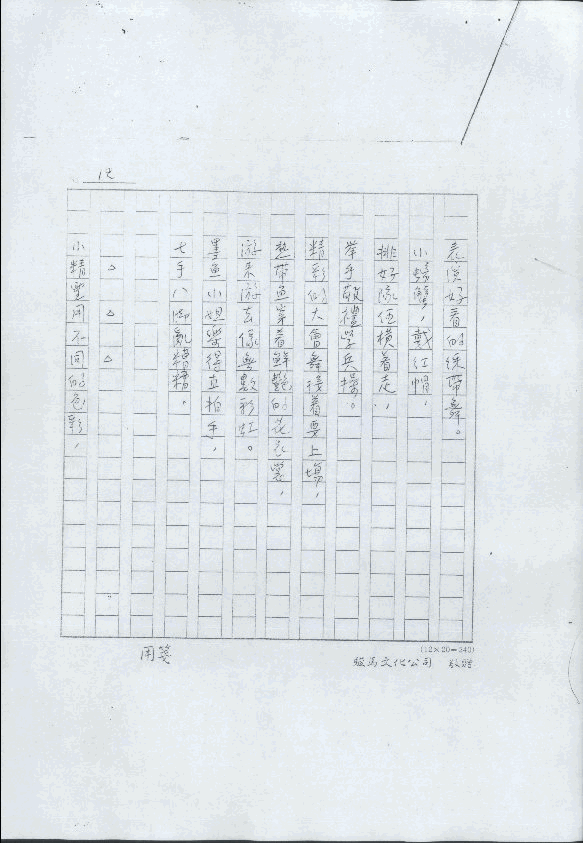 表演好看的綵帶舞。
小螃蟹,戴紅帽,
排好隊伍橫着走,
舉手敬禮學兵操。
精彩的大會舞接着要上場,
熱帶魚穿着鮮艷的花衣裳,
游來游去像無數彩虹。
墨魚小姐樂得直拍手,
七手八腳亂糟糟。
△ △ △
小精靈用不同的色彩,
用箋
(12×20=240)
駿馬文化公司 敬贈